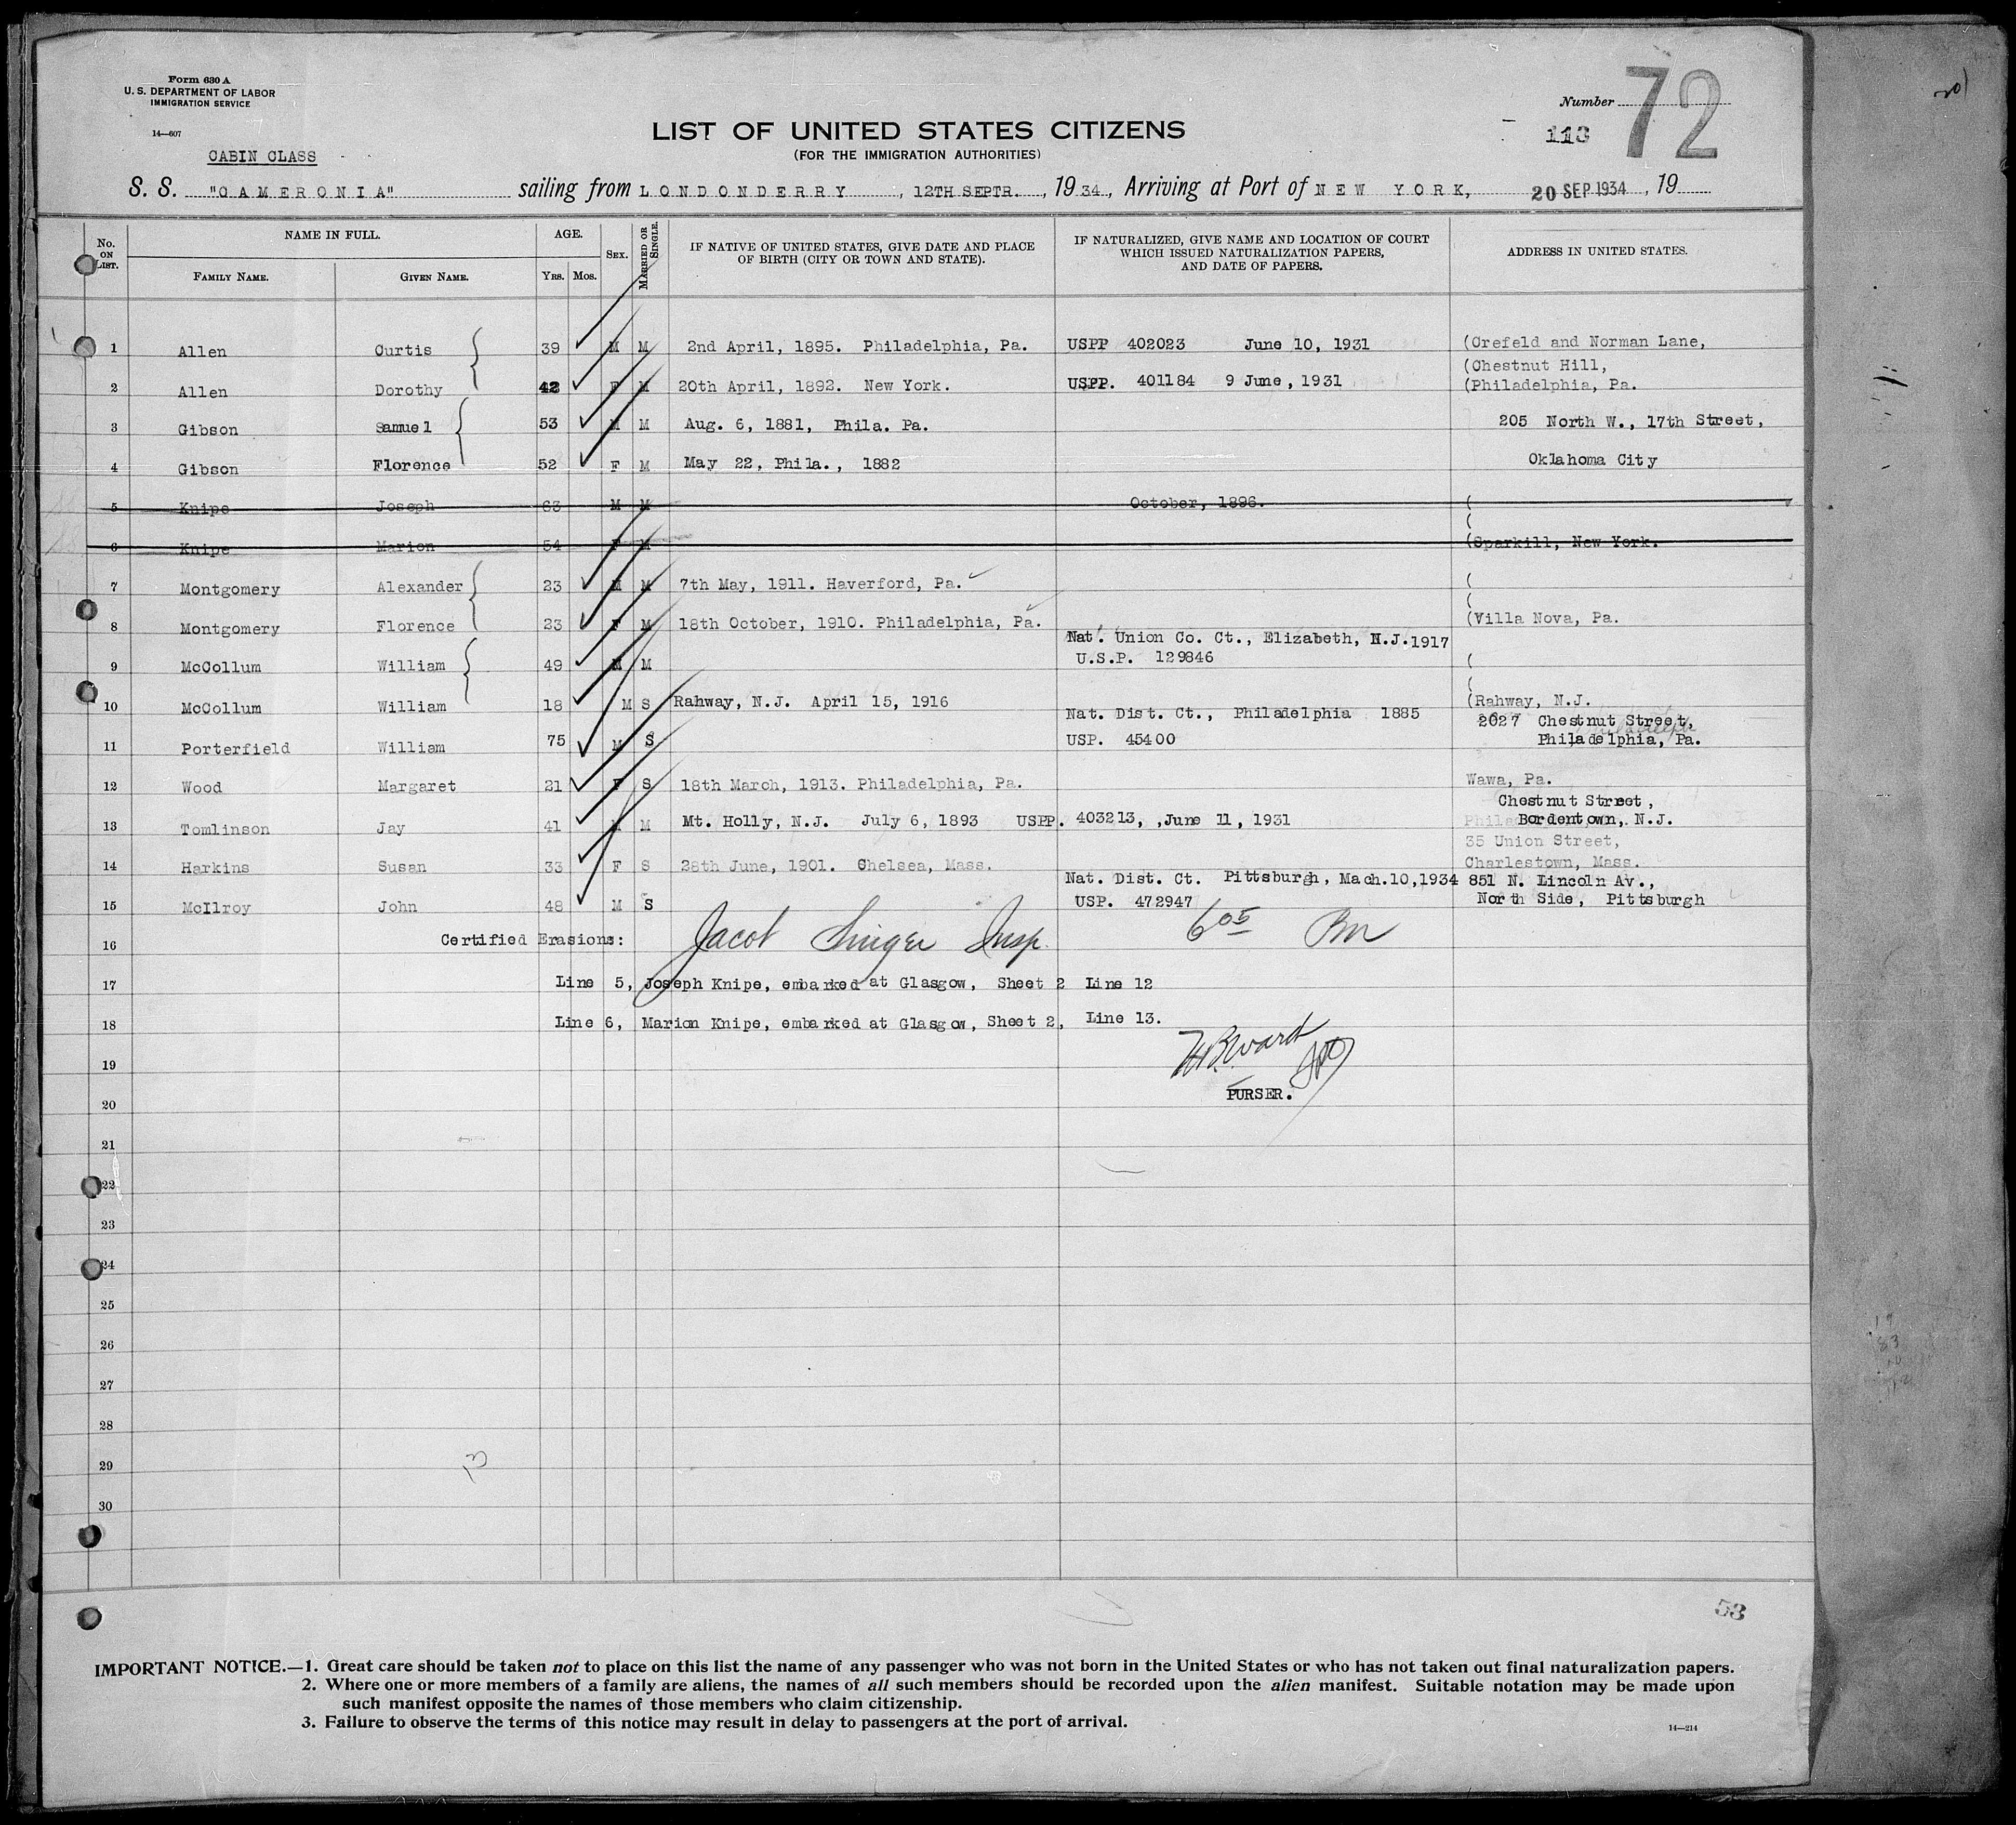 Form 630 A
U. S. DEPARTMENT OF LABOR
IMMIGRATION SERVICE
14—607
Number
72
113
LIST OF UNITED STATES CITIZENS
(FOR THE IMMIGRATION AUTHORITIES)
CABIN CLASS
S. S. "CAMERONIA" sailing from LONDONDERRY, 12TH SEPTR., 1934, Arriving at Port of NEW YORK, 20 SEP 1934, 19
No. ON LIST. NAME IN FULL. AGE. SEX. MARRIED OR SINGLE. IF NATIVE OF UNITED STATES, GIVE DATE AND PLACE OF BIRTH (CITY OR TOWN AND STATE). IF NATURALIZED, GIVE NAME AND LOCATION OF COURT WHICH ISSUED NATURALIZATION PAPERS, AND DATE OF PAPERS. ADDRESS IN UNITED STATES.
FAMILY NAME. GIVEN NAME. YRS. MOS.
1 Allen Curtis 39 M M 2nd April, 1895. Philadelphia, Pa. USPP 402023 June 10, 1931 (Crefeld and Norman Lane,
(Chestnut Hill,
2 Allen Dorothy 42 F M 20th April, 1892. New York. USPP. 401184 9 June, 1931 (Philadelphia, Pa.
3 Gibson Samuel 53 M M Aug. 6, 1881, Phila. Pa. 205 North W., 17th Street,
4 Gibson Florence 52 F M May 22, Phila., 1882 Oklahoma City
5 Knipe Joseph 63 M M October, 1896. (
(
6 Knipe Marion 54 F M (Sparkill, New York.
7 Montgomery Alexander 23 M M 7th May, 1911. Haverford, Pa. (
(
8 Montgomery Florence 23 F M 18th October, 1910. Philadelphia, Pa. (Villa Nova, Pa.
Nat. Union Co. Ct., Elizabeth, N.J. 1917
9 McCollum William 49 M M U.S.P. 129846 (
(
10 McCollum William 18 M S Rahway, N.J. April 15, 1916 (Rahway, N.J.
Nat. Dist. Ct., Philadelphia 1885 2027 Chestnut Street,
11 Porterfield William 75 M S USP. 45400 Philadelphia, Pa.
12 Wood Margaret 21 F S 18th March, 1913. Philadelphia, Pa. Wawa, Pa.
Chestnut Street,
13 Tomlinson Jay 41 M M Mt. Holly, N.J. July 6, 1893 USPP. 403213, ,June 11, 1931 Bordentown, N.J.
35 Union Street,
14 Harkins Susan 33 F S 28th June, 1901. Chelsea, Mass. Charlestown, Mass.
Nat. Dist. Ct. Pittsburgh, Mach.10,1934 851 N. Lincoln Av.,
15 McIlroy John 48 M S USP. 472947 North Side, Pittsburgh
16 Certified Erasions: Jacob Singer Insp. 6 05
17 Line 5, Joseph Knipe, embarked at Glasgow, Sheet 2 Line 12
18 Line 6, Marion Knipe, embarked at Glasgow, Sheet 2, Line 13.
19
PURSER.
20
21
22
23
24
25
26
27
28
29
30
53
IMPORTANT NOTICE.—1. Great care should be taken not to place on this list the name of any passenger who was not born in the United States or who has not taken out final naturalization papers.
2. Where one or more members of a family are aliens, the names of all such members should be recorded upon the alien manifest. Suitable notation may be made upon
such manifest opposite the names of those members who claim citizenship.
3. Failure to observe the terms of this notice may result in delay to passengers at the port of arrival.
14—214